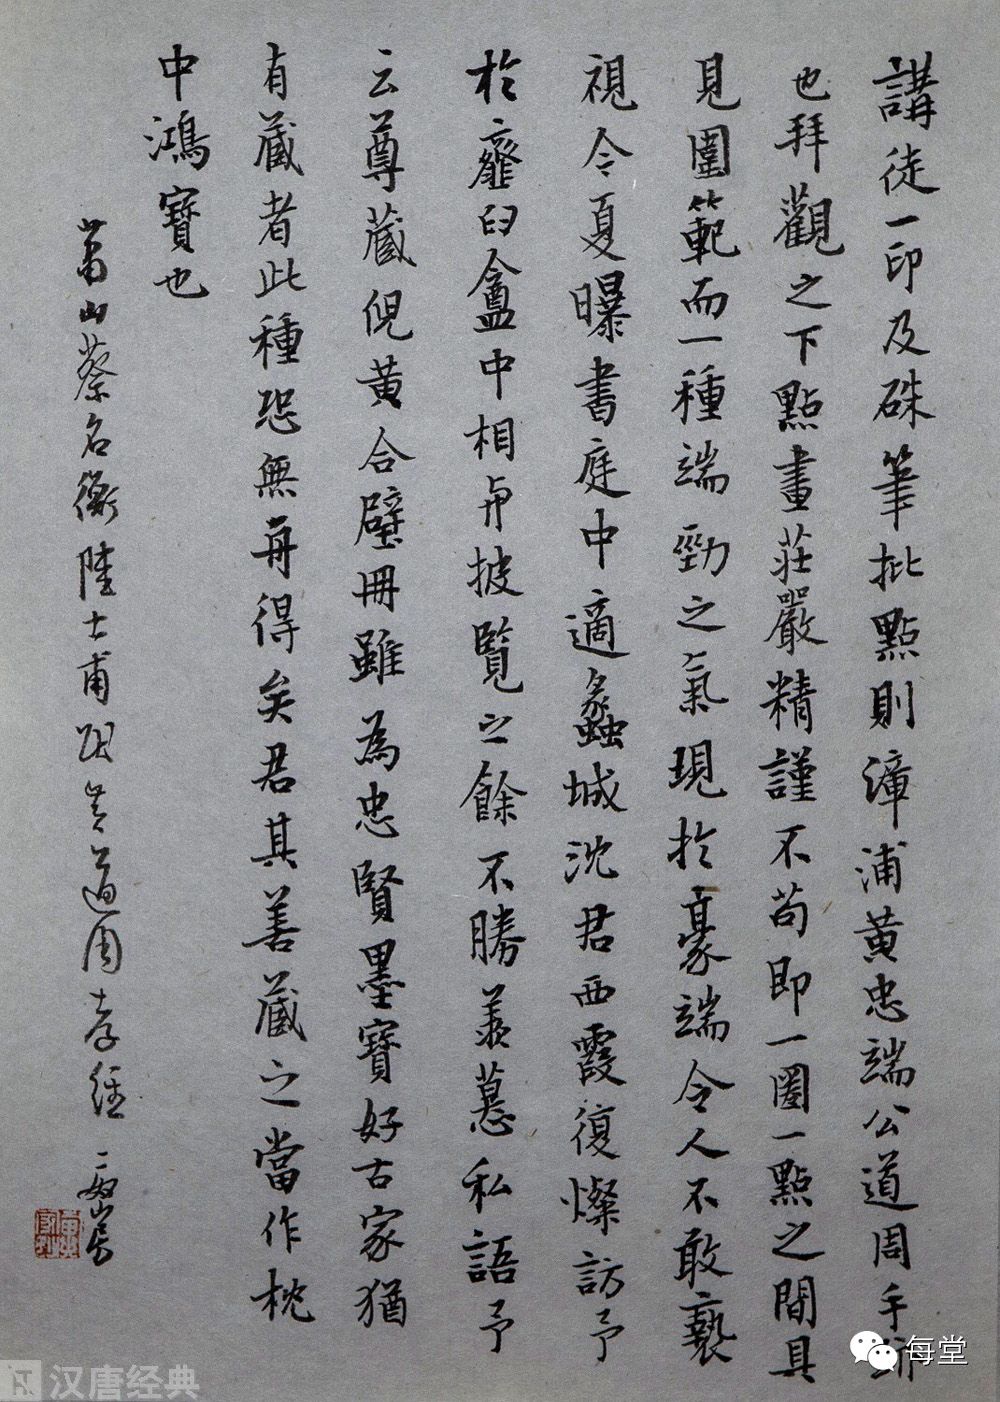 講徒一印及硃筆批點則漳浦黄忠端公道周手
也拜觀之下點畫莊嚴精謹不苟即一圈一點之間具
見圍範而一種端勁之氣現扵豪端令人不敢褻
視今夏曝書庭中適蠡城沈君西霞復燦訪予
扵虀臼盦中相与披覽之餘不勝羨慕私語予
云尊藏倪黄合璧冊雖為忠賢墨寶好古家猶
有藏者此種恐無再得矣君其善藏之當作枕
中鴻寶也
蕭山蔡名衡陸士甫跋黄道周孝經
每堂
汉唐经典